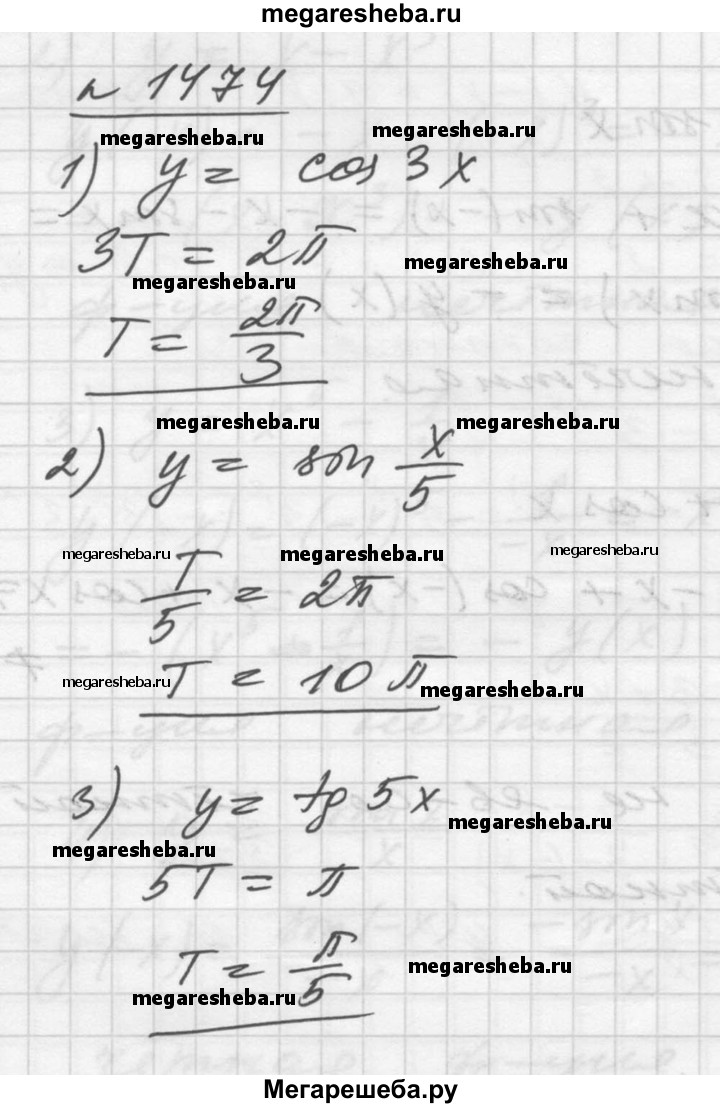 megaresheba.ru
n 1474
megaresheba.ru megaresheba.ru
1) y = cos 3x
3T = 2π
megaresheba.ru megaresheba.ru
T = 2π/3
megaresheba.ru megaresheba.ru
2) y = sin x/5
megaresheba.ru megaresheba.ru megaresheba.ru
T/5 = 2π
megaresheba.ru megaresheba.ru
T = 10π
3) y = tg 5x
megaresheba.ru megaresheba.ru
5T = π
T = π/5
megaresheba.ru megaresheba.ru
Мегарешеба.ру